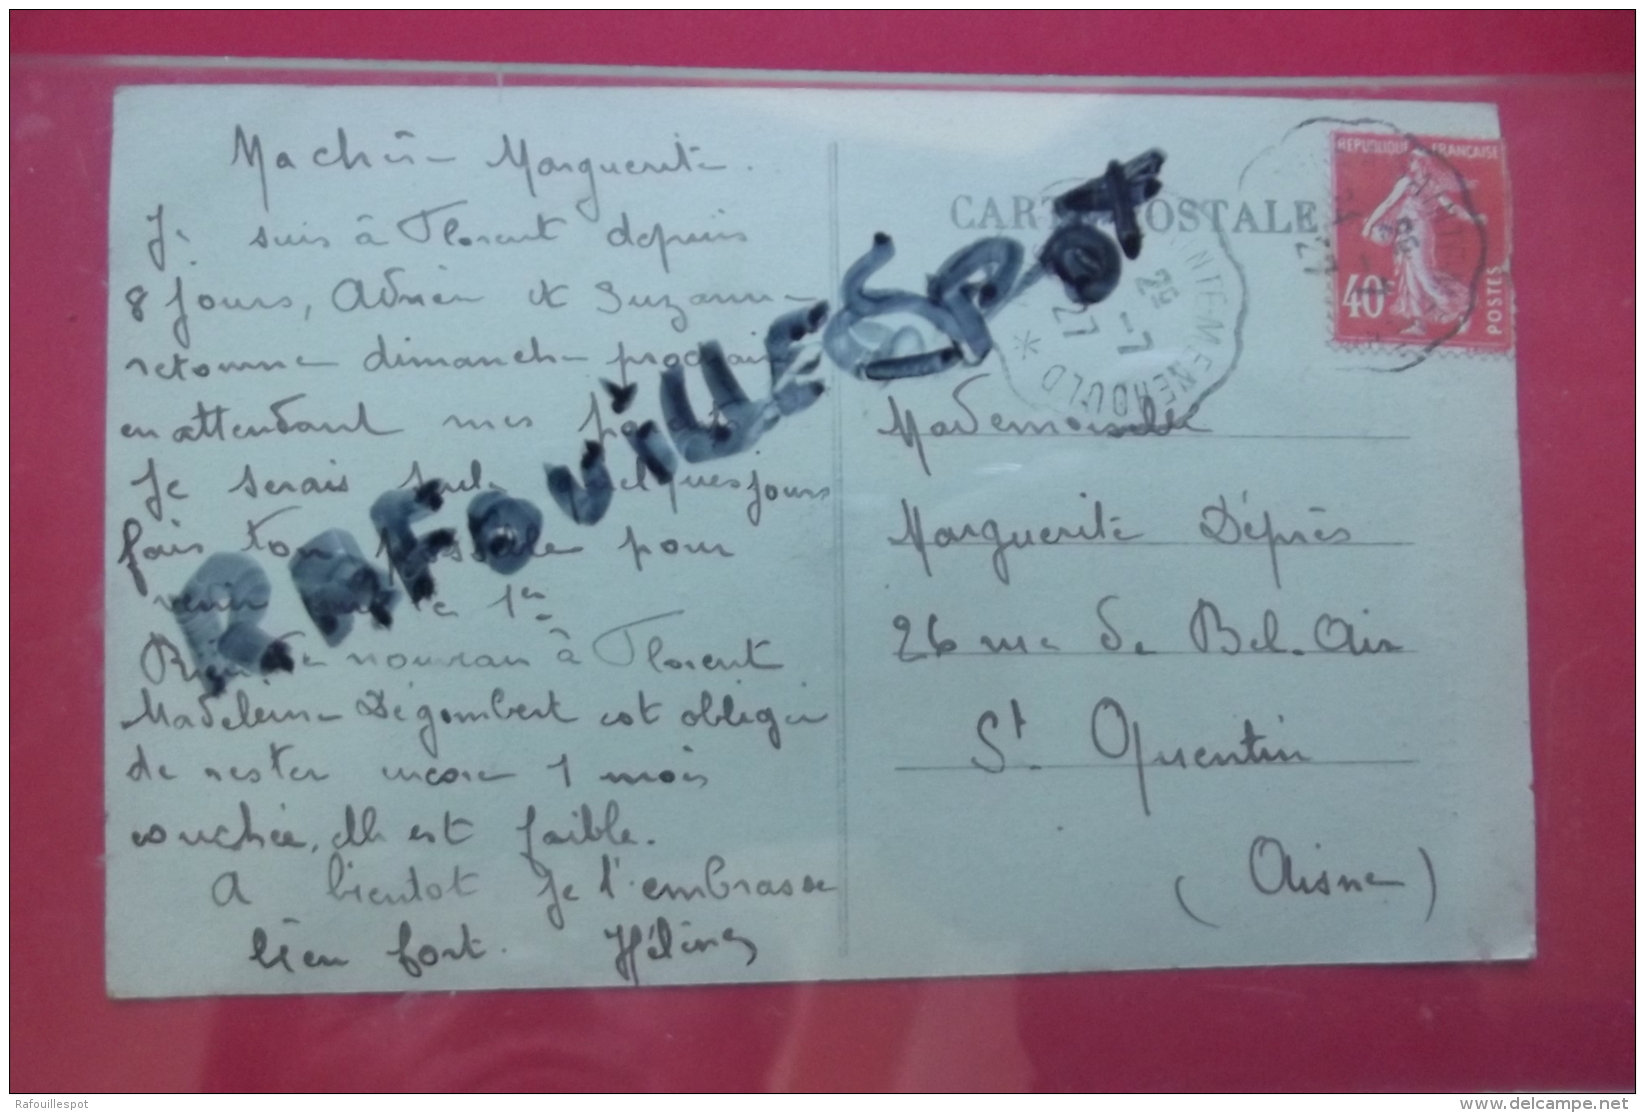 Ma chère Marguerite.
Je suis à Florent depuis
8 jours, Adrien et Suzanne
retourne dimanche prochain
en attendant mes
Je serais jours
fais ton pour
venir 1er
Rien de nouveau à Florent
Madeleine Dégombert est obligée
de rester encore 1 mois
couchée, elle est faible.
A bientot je t'embrasse
bien fort. Hélène
CARTE POSTALE
REPUBLIQUE FRANÇAISE
40c
POSTES
SAINTE-MENEHOULD
28 -7
27
Mademoiselle
Marguerite Déprès
26 rue de Bel-Air
St Quentin
(Aisne)
RAFOUILLESPOT
Rafouillespot
delcampe.net